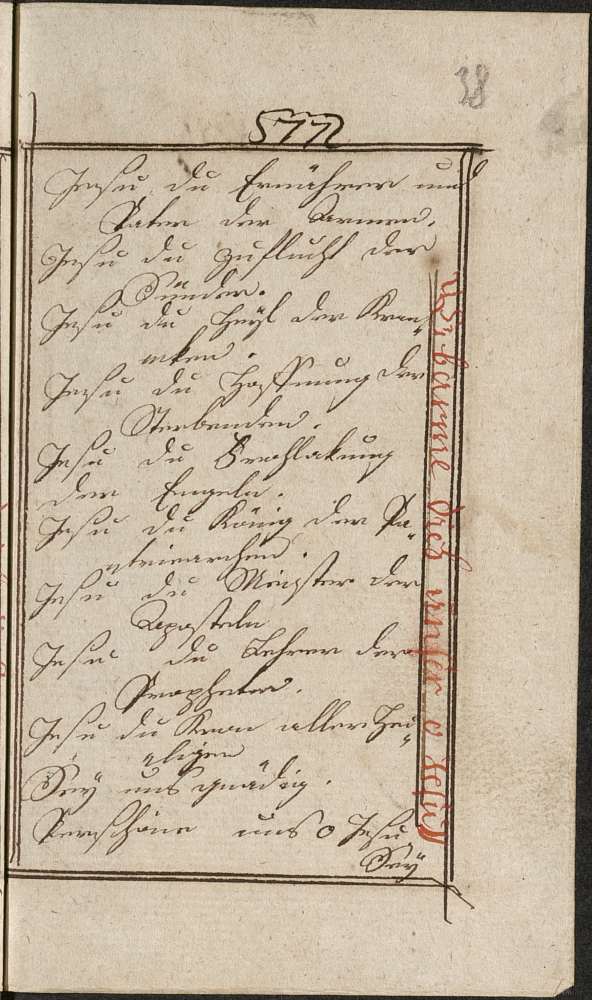 38
577
Jesu du Ernährer und
Vater der Armen.
Jesu du Zuflucht der
Sünder.
Jesu du Heyl der Kran„
nken.
Jesu du Hoffnung der
Sterbenden.
Jesu du Frohlakung
der Engeln.
Jesu du König der Pa„
atriarchen.
Jesu du Meister der
Aposteln
Jesu du Lehrer der
Propheten.
Jesu du Kron aller Hei„
iligen
Sey uns gnädig.
Verschone uns o Jesu
Sey
Erbarme dich unser o Jesu